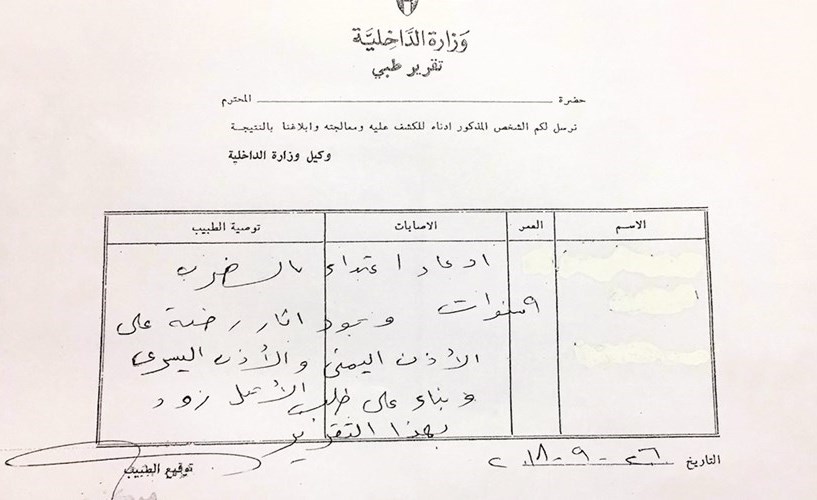 وزارة الداخلية
تقرير طبي
حضرة ــــــــــ المحترم
نرسل لكم الشخص المذكور ادناه للكشف عليه ومعالجته وابلاغنا بالنتيجة
وكيل وزارة الداخلية
الاسم العمر الاصابات توصية الطبيب
ادعاء اعتداء بالضرب
٩ سنوات وجود اثار رضة على
الأذن اليمنى والأذن اليسرى
وبناء على طلب الأهل زود
بهذا التقرير
التاريخ ٢٦ - ٩ - ٢٠١٨ توقيع الطبيب